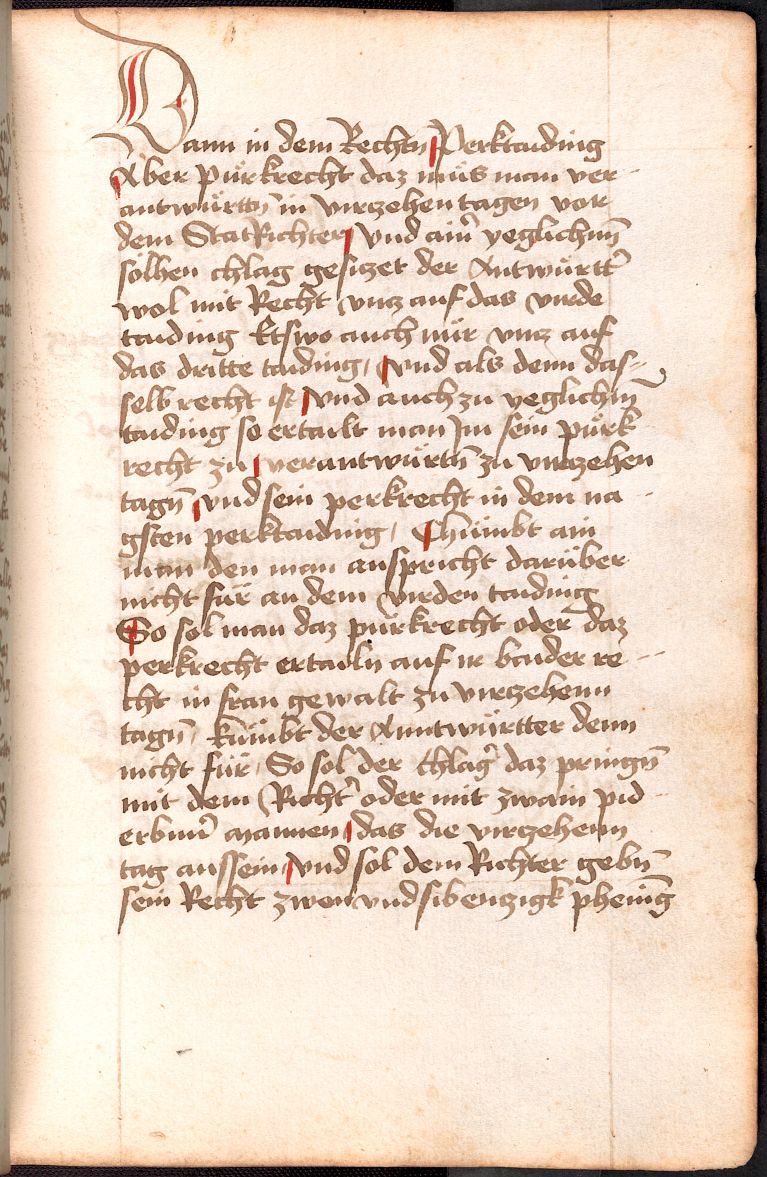 Dann in dem Rechtn̄ Perktaiding
Aber purkrecht daz müs man ver-
antwürttn̄ in virczehen tagen vor
dem StatRichter vnd aim̄ yeglichnn̄
sölhen chlag gesiczet der Antwürtt̄
wol mit Recht vncz auf das virde
taiding Etswo auch nür vncz auf
das dritte taiding, vnd als denn das-
selb recht ist vnd auch zu yeglichm̄
taiding so ertailt man Im sein pürk
recht zu verantwürtn̄ zu virczehen
tagn̄ vnd sein perkrecht in dem na-
gsten perktaiding, Chümbt ain
man den man anspricht darüber
nicht für an dem virden taiding
So sol man daz purkrecht oder daz
perkrecht ertailn auf ir baider re-
cht in fran gewalt zu virczehenn
tagn̄, kümbt der Anntwürtter denn
nicht für, So sol der chlaḡ daz pringn̄
mit dem Richt̄ oder mit zwain pid-
erbmn̄ mannen das die virczehenn
tag aussein vnd sol dem Richter gebn̄
sein Recht zwen vnd sibenczigk phening